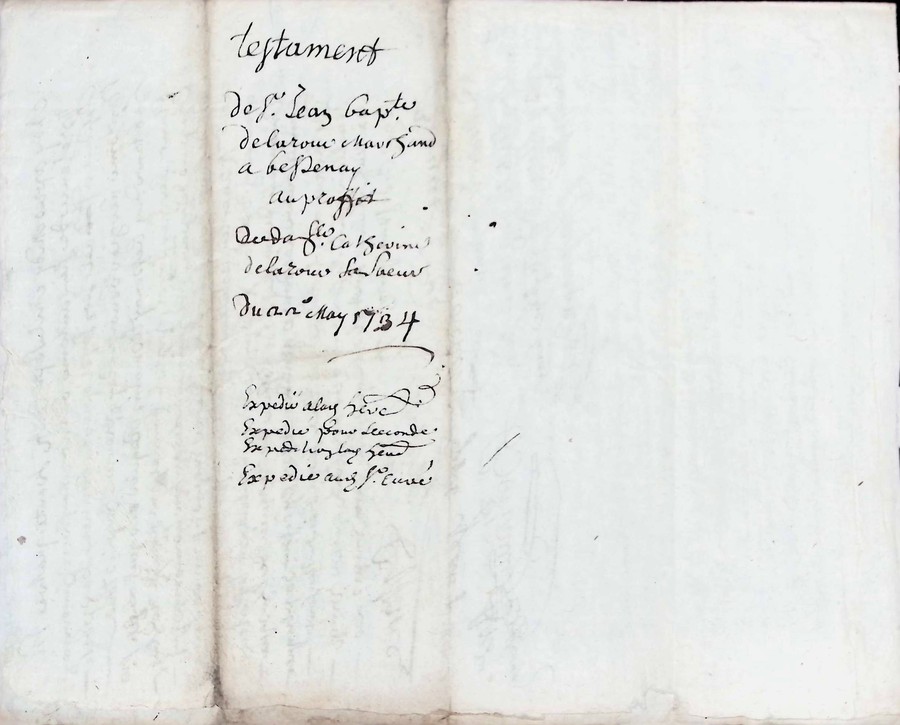 testament
de Sr. Jean bapte.
delaroue Marchand
a bessenay
au proffit
De dalle. Catherine
delaroue sa soeur
Du 22e May 1734
Expedié a lad herre
Expedié pour seconde
Expedition lad
Expedié aud Sr. Curé